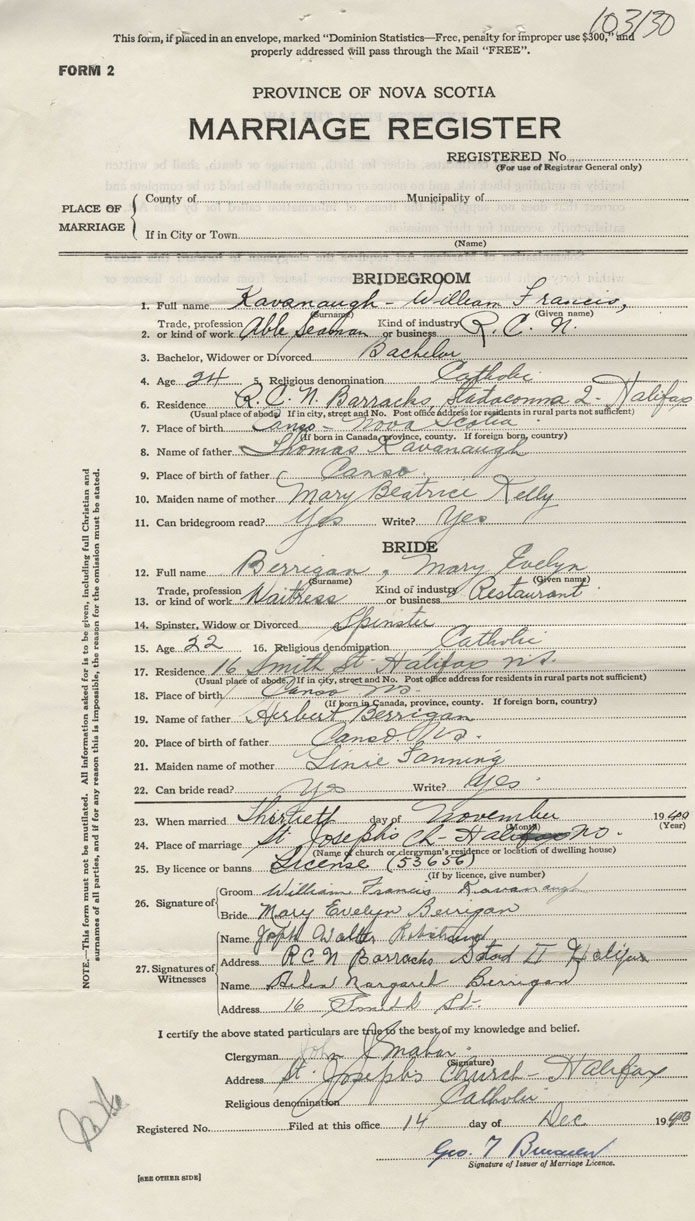 103/30
This form, if placed in an envelope, marked "Dominion Statistics—Free, penalty for improper use $300," and
properly addressed will pass through the Mail "FREE".
FORM 2
PROVINCE OF NOVA SCOTIA
MARRIAGE REGISTER
REGISTERED No.
(For use of Registrar General only)
PLACE OF MARRIAGE
County of Municipality of
If in City or Town
(Name)
BRIDEGROOM
1. Full name Kavanaugh - William Francis,
(Surname) (Given name)
2. Trade, profession or kind of work Able Seaman Kind of industry or business R. C. N.
3. Bachelor, Widower or Divorced Bachelor
4. Age 24 5. Religious denomination Catholic
6. Residence R. C. N. Barracks, Stadacona 2 - Halifax
(Usual place of abode. If in city, street and No. Post office address for residents in rural parts not sufficient)
7. Place of birth Canso - Nova Scotia
(If born in Canada, province, county. If foreign born, country)
8. Name of father Thomas Kavanaugh
9. Place of birth of father Canso.
10. Maiden name of mother Mary Beatrice Kelly
11. Can bridegroom read? Yes Write? Yes
BRIDE
12. Full name Berrigan, Mary Evelyn
(Surname) (Given name)
13. Trade, profession or kind of work Waitress Kind of industry or business Restaurant
14. Spinster, Widow or Divorced Spinster
15. Age 22 16. Religious denomination Catholic
17. Residence 16 Smith St. Halifax N.S.
(Usual place of abode. If in city, street and No. Post office address for residents in rural parts not sufficient)
18. Place of birth Canso N.S.
(If born in Canada, province, county. If foreign born, country)
19. Name of father Herbert Berrigan
20. Place of birth of father Canso. N.S.
21. Maiden name of mother Fanning
22. Can bride read? Yes Write? Yes.
23. When married Thirtieth day of November 1940
(Month) (Year)
24. Place of marriage St Joseph's Ch- Halifax
(Name of church or clergyman's residence or location of dwelling house)
25. By licence or banns License (53656)
(If by licence, give number)
26. Signature of
Groom William Francis Kavanaugh
Bride Mary Evelyn Berrigan
27. Signatures of Witnesses
Name Walter
Address R C N Barracks Stad II Halifax
Name Margaret Berrigan
Address 16 Smith St.
I certify the above stated particulars are true to the best of my knowledge and belief.
Clergyman John
(Signature)
Address St. Joseph's Church - Halifax
Religious denomination Catholic
Registered No. Filed at this office 14 day of Dec. 1940
Geo. T
Signature of Issuer of Marriage Licence.
[SEE OTHER SIDE]
NOTE.—This form must not be mutilated. All information asked for is to be given, including full Christian and
surnames of all parties, and if for any reason this is impossible, the reason for the omission must be stated.